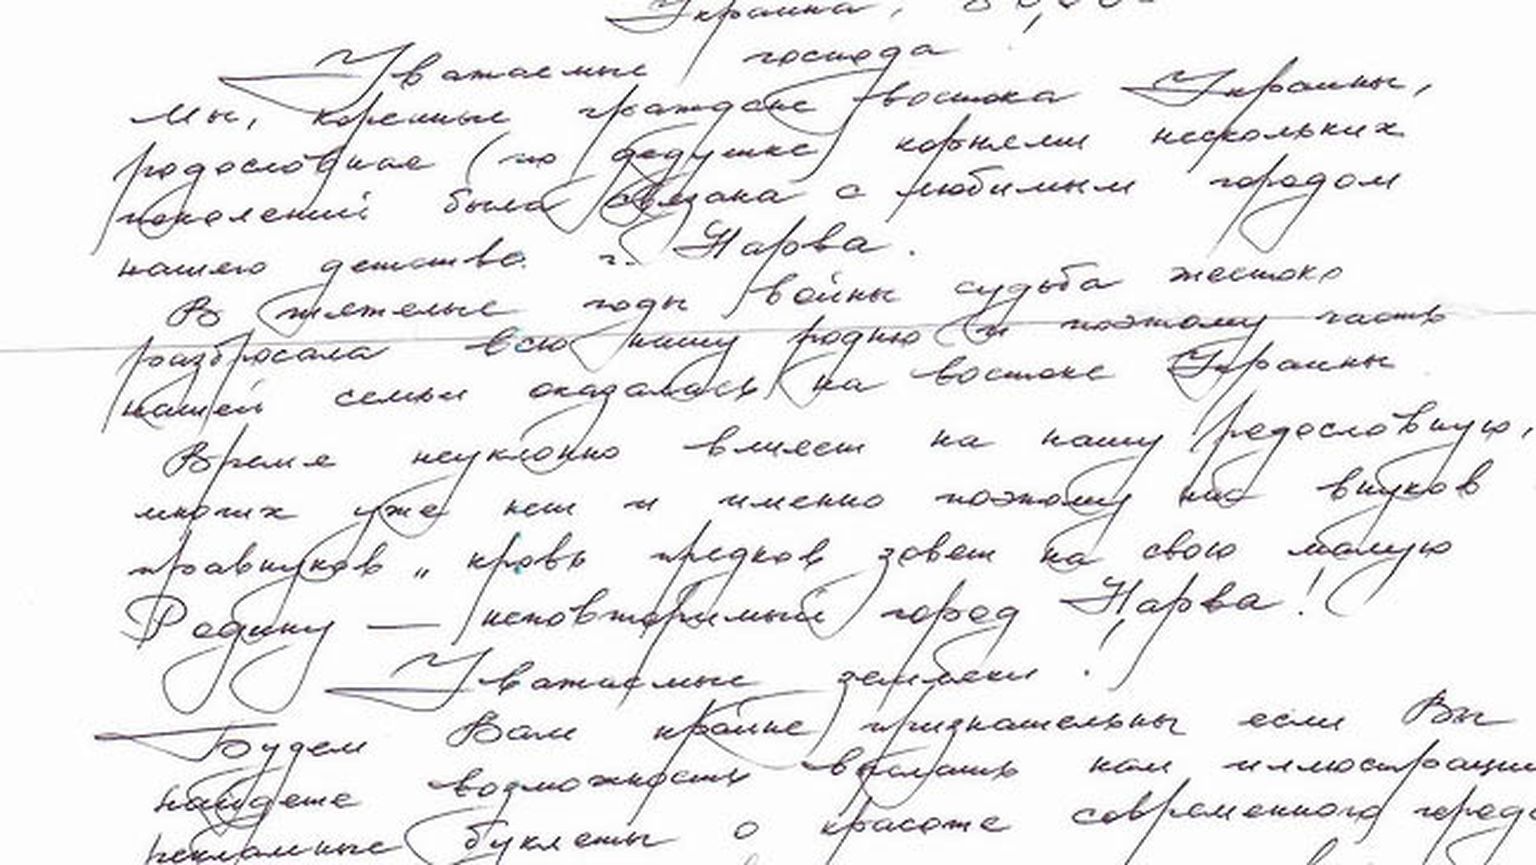 Украина,
Уважаемые господа!
Мы, коренные граждане востока Украины,
родословная (по дедушке) корнями нескольких
поколений была связана с любимым городом
нашего детства г. Нарва.
В тяжелые годы войны судьба жестоко
разбросала всю нашу родню и поэтому часть
нашей семьи оказалась на востоке Украины
Время неуклонно влияет на нашу родословную,
многих уже нет и именно поэтому нас внуков
правнуков „ кровь предков зовет на свою малую
Родину — неповторимый город Нарва!
Уважаемые земляки!
Будем Вам крайне признательны если Вы
найдете возможность выслать нам иллюстрации
рекламные буклеты о красоте современного города